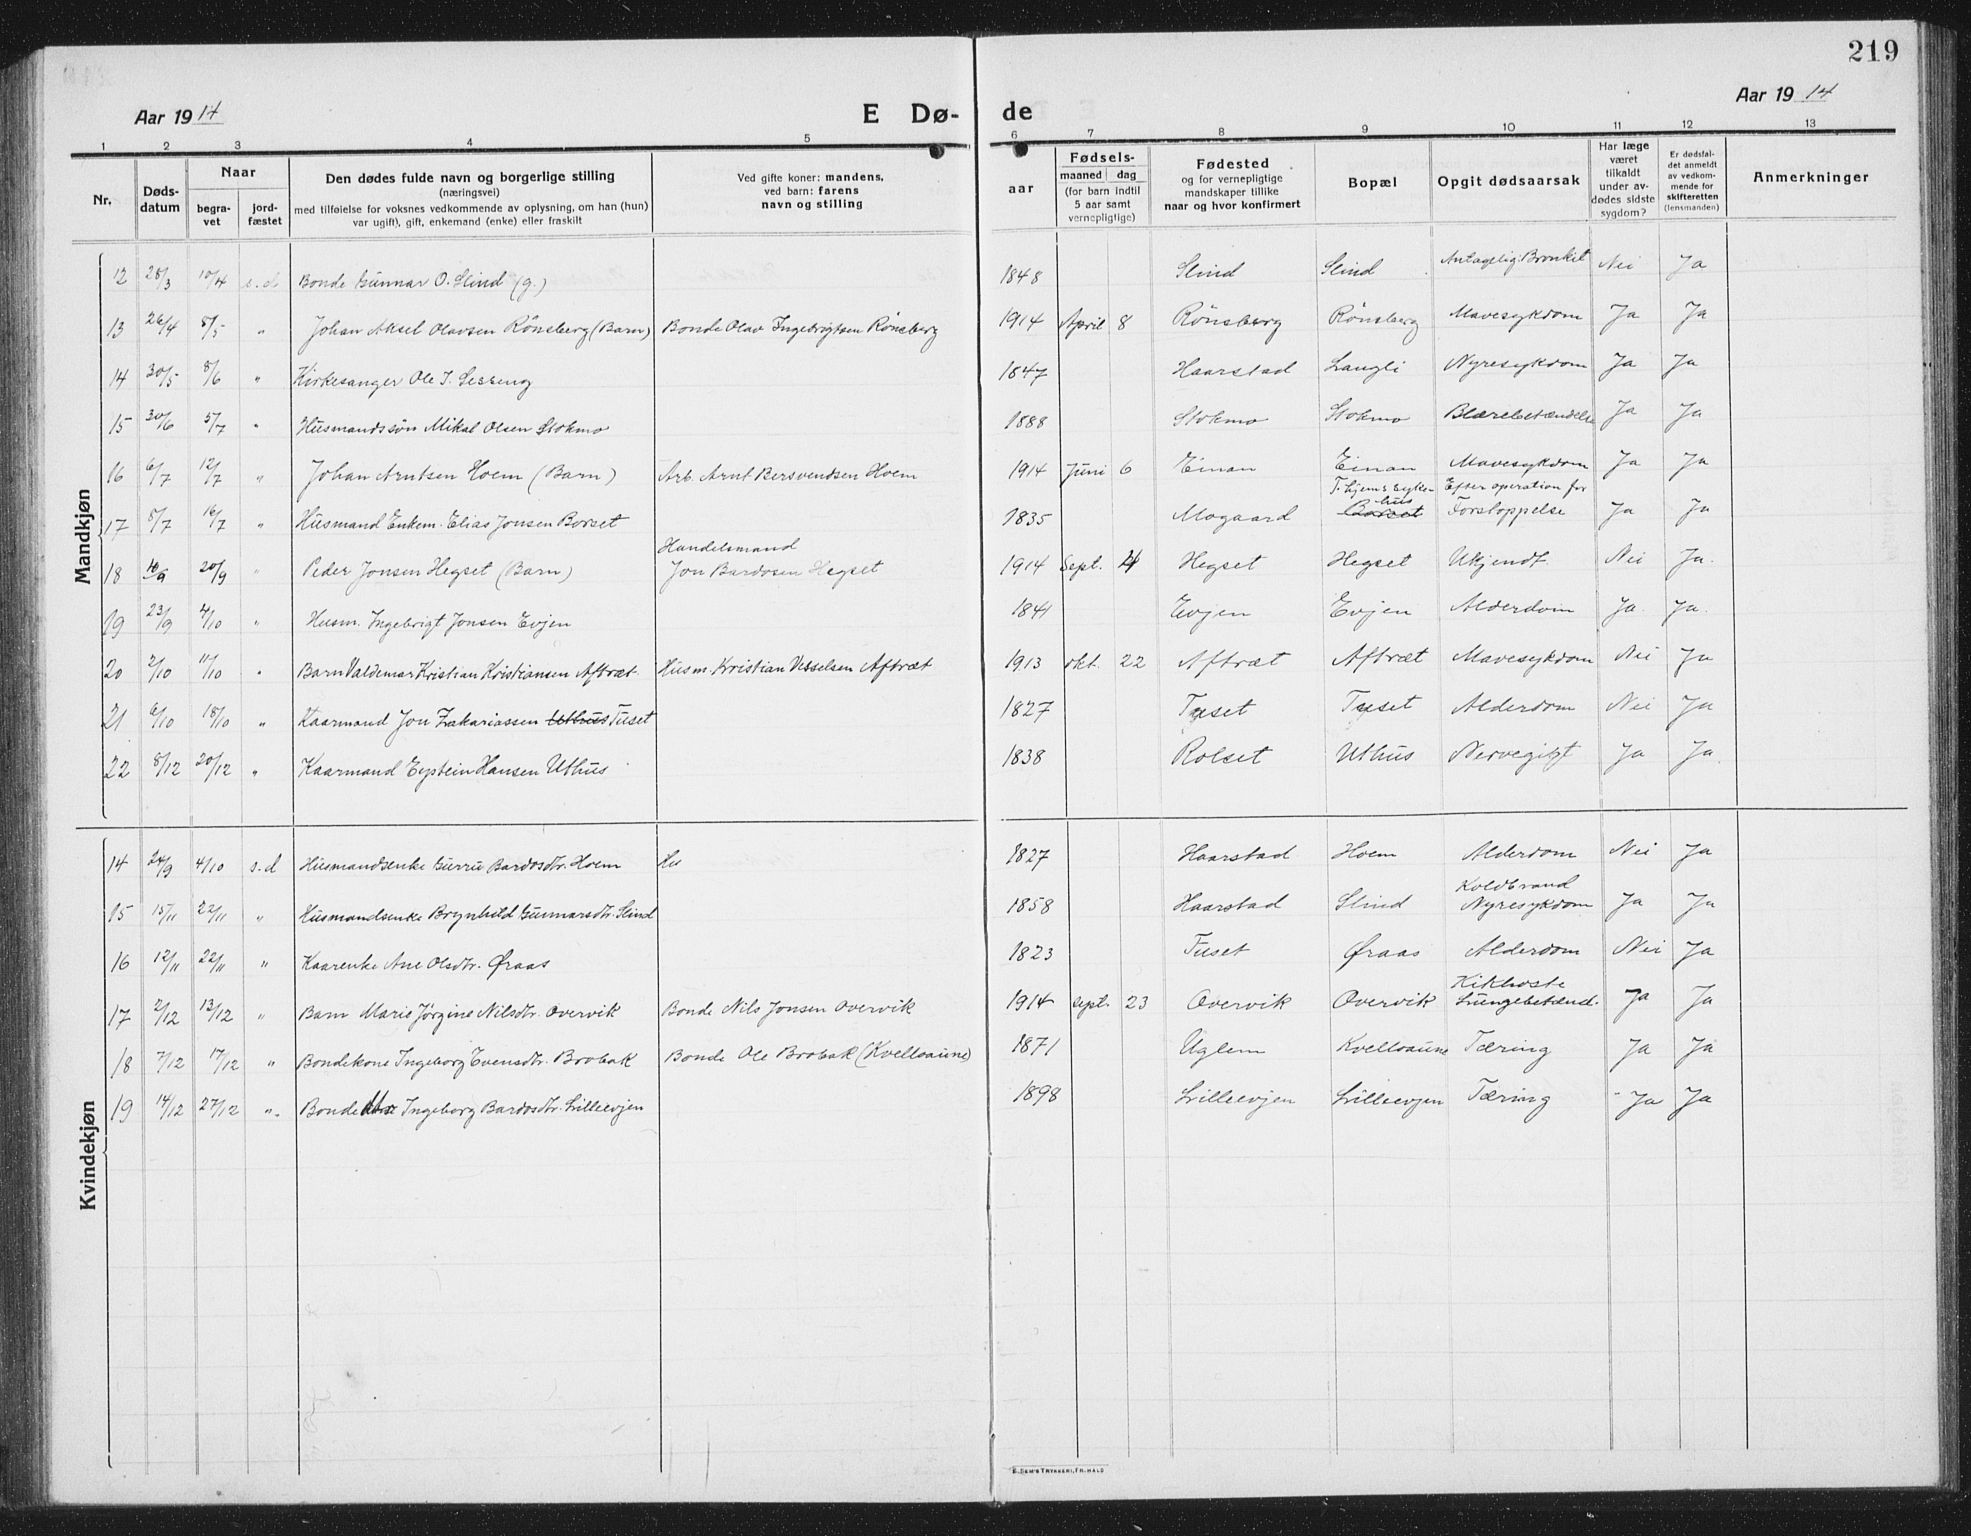 219
Aar 1914 E Dø- de Aar 1914
1 2 3 4 5 6 7 8 9 10 11 12 13
Nr. Døds-datum Naar begra-vet jord-fæstet Den dødes fulde navn og borgerlige stilling (næringsvei) med tilføielse for voksnes vedkommende av oplysning, om han (hun) var ugift, gift, enkemand (enke) eller fraskilt Ved gifte koner: mandens, ved barn: farens navn og stilling aar Fødsels- maaned dag (for barn indtil 5 aar samt vernepligtige) Fødested og for vernepligtige mandskaper tillike naar og hvor konfirmert Bopæl Opgit dødsaarsak Har læge været tilkaldt under av-dødes sidste sygdom? Er dødsfal-det anmeldt av vedkom-mende for skifteretten (lensmanden) Anmerkninger
Mandkjøn
12 28/3 10/4 s.d Bonde Gunnar O. Slind (g.) 1848 Slind Slind Antagelig Bronkit Nei Ja
13 26/4 8/5 " Johan Aksel Olavsen Rønsberg (Barn) Bonde Olav Ingebrigtsen Rønsberg 1914 April 8 Rønsberg Rønsberg Mavesykdom Ja Ja
14 30/5 8/6 " Kirkesanger Ole J. Sesseng 1847 Haarstad Langli Nyresykdom Ja Ja
15 30/6 5/7 " Husmandssøn Mikal Olsen Stokmo 1888 Stokmo Stokmo Blærebetændelse Ja Ja
16 6/7 12/7 " Johan Arntsen Hoem (Barn) Arb. Arnt Bersvendsen Hoem 1914 Juni 6 Einan Einan Mavesykdom Ja Ja
T. hjems syke- Efter operation for
17 8/7 16/7 " Husmand Enkem. Elias Jonsen Borset 1835 Mogaard hus Borset Forstoppelse Ja Ja
Handelsmand
18 20/9 " Peder Jonsen Hegset (Barn) Jon Bardosen Hegset 1914 Sept. 4 Hegset Hegset Ukjendt Nei Ja.
19 23/9 4/10 " Husm. Ingebrigt Jonsen Evjen 1841 Evjen Evjen Alderdom Ja. Ja.
20 2/10 11/10 " Barn Valdemar Kristian Kristiansen Aftræt. Husm. Kristian Vesselsen Aftræt 1913 okt. 22 Aftræt Aftræt Mavesykdom Nei Ja
21 6/10 18/10 " Kaarmand Jon Zakariassen Uthus Tuset 1827 Tuset Tuset Alderdom Nei Ja
22 8/12 20/12 " Kaarmand Eystein Hansen Uthus 1838 Rolset Uthus Nervegigt Ja Ja.
Kvindekjøn
14 24/9 4/10 s.d Husmandsenke Gurru Bardosdtr. Hoem Hu 1827 Haarstad Hoem Alderdom Nei Ja
Koldbrand
15 15/11 22/11 " Husmandsenke Brynhild Gunnarsdtr. Slind 1858 Haarstad Slind Nyresykdom Ja Ja
16 12/11 22/11 " Kaarenke Ane Olsdtr. Øraas 1823 Tuset Øraas Alderdom Nei Ja
Kikhoste
17 2/12 13/12 " Barn Marie Jørgine Nilsdtr. Overvik Bonde Nils Jonsen Overvik 1914 Sept. 23 Overvik Overvik Lungebetænd. Ja Ja
18 7/12 17/12 " Bondekone Ingeborg Evensdtr. Brobak Bonde Ole Brobak (Kvellosaune) 1871 Uglem Kvellosaune Tæring Ja Ja
19 14/12 27/12 " Bonde Ingeborg Bardosdtr. Lilleevjen 1898 Lilleevjen Lilleevjen Tæring Ja Ja
E. SEM'S TRYKKERI, FR. HALD